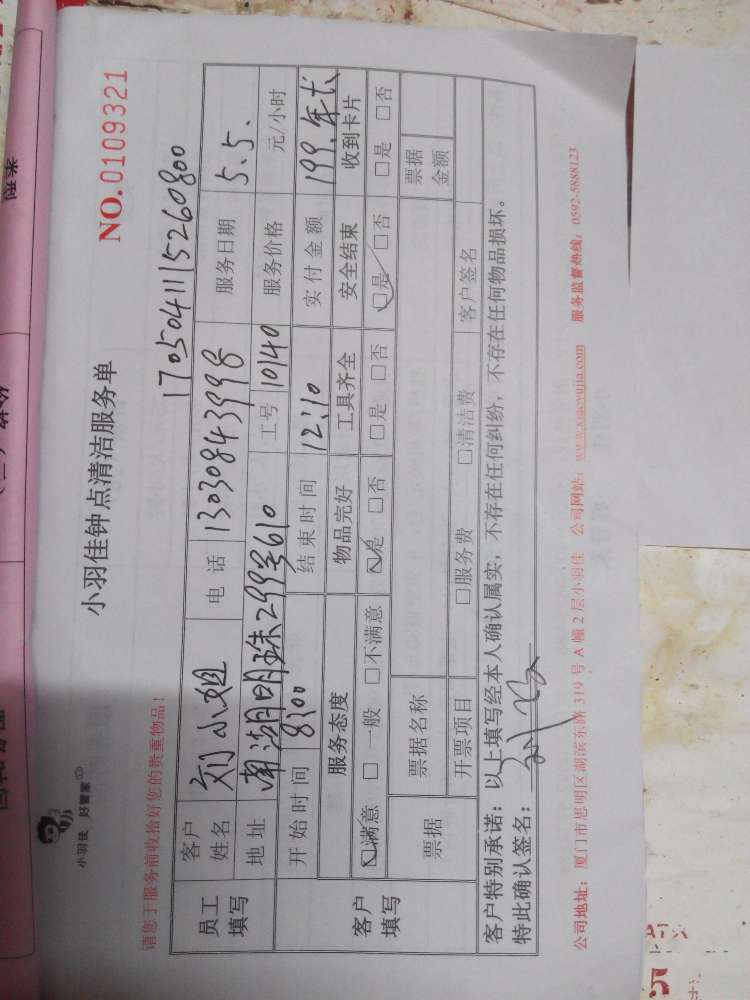 小羽佳 好管家
小羽佳钟点清洁服务单
NO.0109321
请您于服务前收拾好您的贵重物品!
1705041115260800
员工填写 客户姓名 刘小姐 电话 13030843998 服务日期 5.5.
地址 南湖明珠299号610 工号 10140 服务价格 元/小时
客户填写 开始时间 8:00 结束时间 12:10 实付金额 199.年长
服务态度 物品完好 工具齐全 安全结束 收到卡片
☑满意 □一般 □不满意 ☑是 □否 □是 □否 ☑是 □否 □是 □否
票据 票据名称 票据金额
开票项目 □服务费 □清洁费 客户签名
客户特别承诺:以上填写经本人确认属实,不存在任何纠纷,不存在任何物品损坏。
特此确认签名:
公司地址:厦门市思明区湖滨东路319号A幢2层小羽佳 公司网站:www.xiaoyujia.com 服务监督热线:0592-5888123